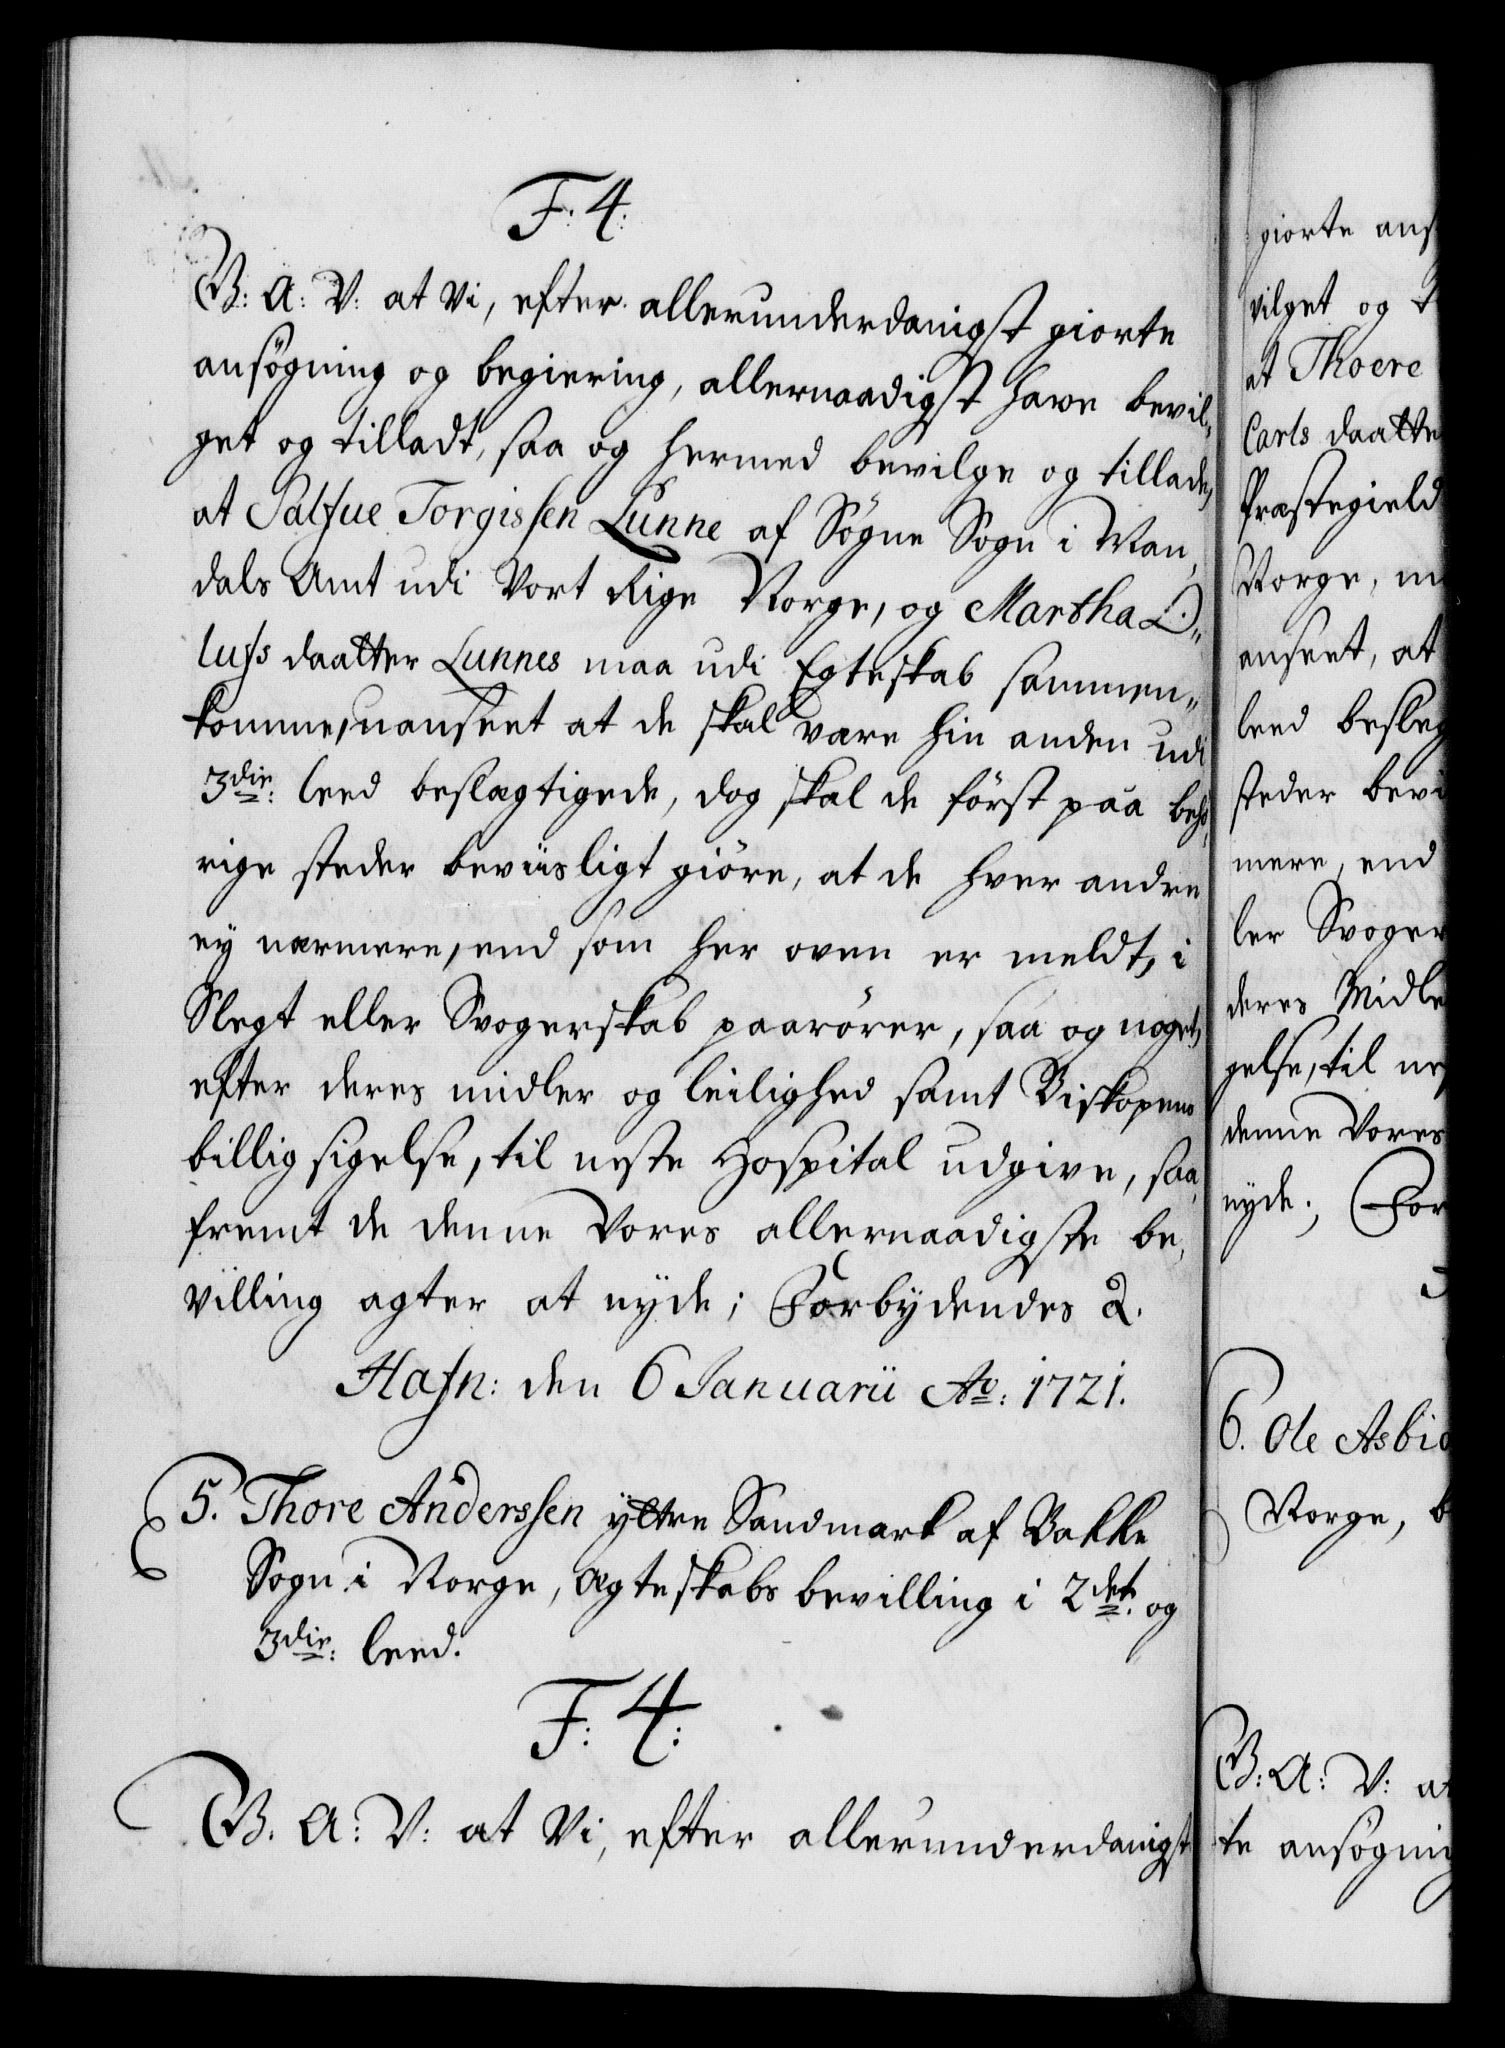 F: 4:
G: A: V: at Vi, efter allerunderdanigst giorte
ansøgning og begiering, allernaadigst have bevil„
get og tilladt, saa og hermed bevilge og tillade,
at Salfue Torgissen Lunne af Søgne Sogn i Man„
dals Amt udi Vort Rige Norge, og Martha O„
lufs daatter Lunnes maa udi Egteskab sammen„
komme, uanseet at de skal være hin anden udi
3die: leed beslægtigede, dog skal de först paa behö„
rige steder beviisligt giöre, at de hver andre
ey nærmere, end som her oven er meldt, i
Slegt eller Svogerskab paarörer, saa og noget,
efter deres midler og leilighed samt Biskopens
billig sigelse, til neste Hospital udgive, saa„
fremt de denne Vores allernaadigste be„
villing agter at nyde; Forbydendes &.
Hafn: den 6 Januarii Ao: 1721.
5. Thore Anderssen ÿttre Sandmark af Bakke
Sogn i Norge, Ægteskabs bevilling i 2det: og
3die: leed.
F: 4:
G. A: V: at Vi, efter allerunderdanigst
giorte ans
vilget og t
at Thoere
Carls daatte
Præstegield
Norge, m
anseet, at
leed besleg
steder bevi
mere, end
ler Svoger
deres Midle
gelse, til ne
denne Vores
nyde; For
6. Ole Asbiø
Norge, b
G: A: V: at
te ansøgning